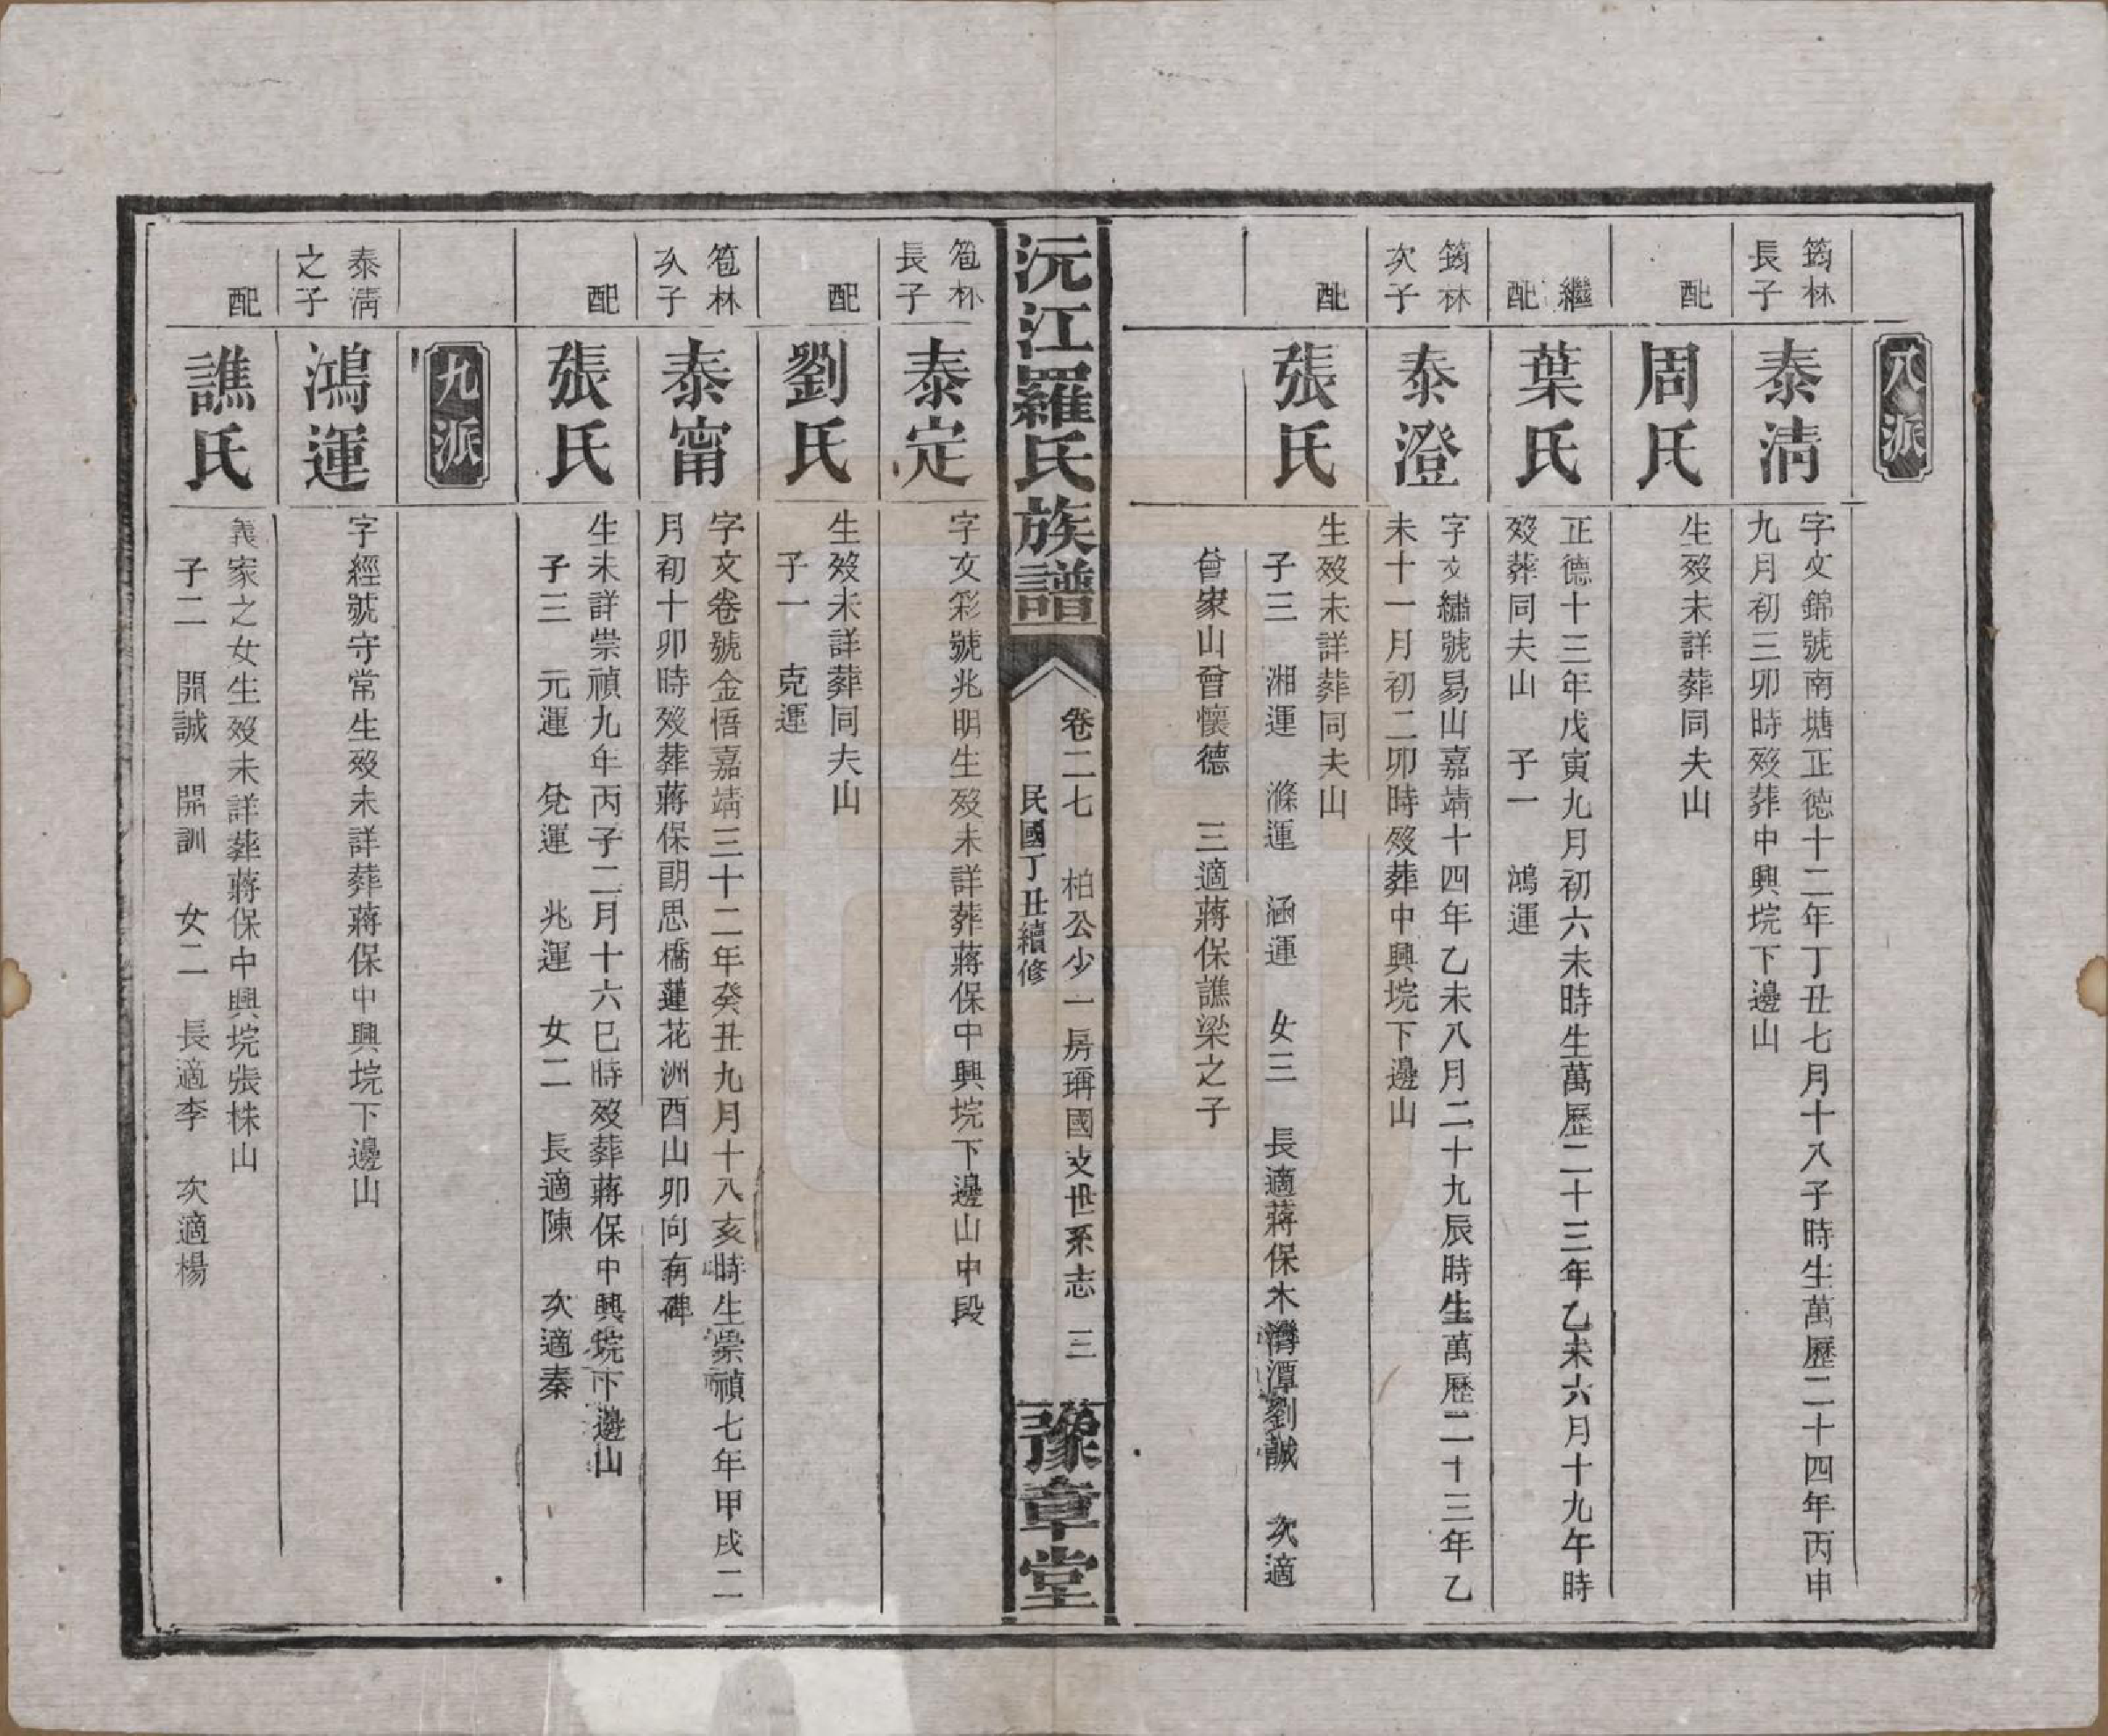 八派
筠林
長子
泰淸
字文錦號南塘正德十二年丁丑七月十八子時生萬歷二十四年丙申
九月初三卯時歿葬中興垸下邊山
配
周氏
生歿未詳葬同夫山
繼
配
葉氏
正德十三年戊寅九月初六未時生萬歷二十三年乙未六月十九午時
歿葬同夫山 子一 鴻運
筠林
次子
泰澄
字文繡號易山嘉靖十四年乙未八月二十九辰時生萬歷二十三年乙
未十一月初二卯時歿葬中興垸下邊山
配
張氏
生歿未詳葬同夫山
子三 湘運 滌運 涵運 女三 長適蔣保木灣潭劉誠 次適
曾家山曾懷德 三適蔣保譙梁之子
沅江羅氏族譜
卷二七 柏公少一房瑀國支世系志 三
民國丁丑續修
豫章堂
筍林
長子
泰定
字文彩號兆明生歿未詳葬蔣保中興垸下邊山中段
配
劉氏
生歿未詳葬同夫山
子一 克運
次子
泰甯
字文卷號金悟嘉靖三十二年癸丑九月十八亥時生崇禎七年甲戌二
月初十卯時歿葬蔣保朗思橋蓮花洲酉山卯向有碑
配
張氏
生未詳崇禎九年丙子二月十六巳時歿葬蔣保中興垸下邊山
子三 元運 兌運 兆運 女二 長適陳 次適秦
九派
泰淸
之子
鴻運
字經號守常生歿未詳葬蔣保中興垸下邊山
配
譙氏
義家之女生歿未詳葬蔣保中興垸張株山
子二 開誠 開訓 女二 長適李 次適楊